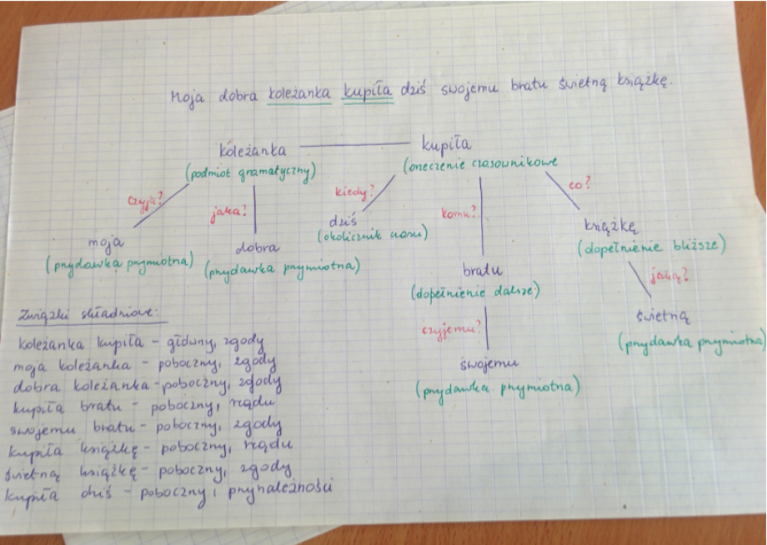 Moja dobra koleżanka kupiła dziś swojemu bratu świetną książkę.
koleżanka kupiła
(podmiot gramatyczny) (orzeczenie czasownikowe
czyja? jaka? kiedy? komu? co?
moja
(przydawka przymiotna)
dobra
(przydawka przymiotna)
dziś
(okolicznik czasu)
bratu
(dopełnienie dalsze)
książkę
(dopełnienie bliższe)
jaką?
świetną
(przydawka przymiotna)
czyjemu?
swojemu
(przydawka przymiotna)
Związki składniowe:
koleżanka kupiła - główny, zgody
moja koleżanka - poboczny, zgody
dobra koleżanka - poboczny, zgody
kupiła bratu - poboczny, rządu
swojemu bratu - poboczny, zgody
kupiła książkę - poboczny, rządu
świetną książkę - poboczny, zgody
kupiła dziś - poboczny, przynależności